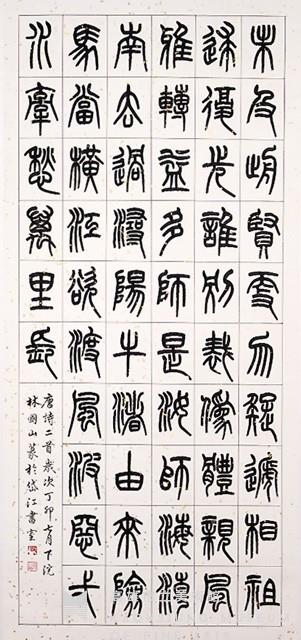 未及前賢更勿疑遞相祖
述復先誰別裁偽體親風
雅轉益多師是汝師海潮
南去過潯陽牛渚由來險
馬當橫江欲渡風波惡弌
水牽愁萬里長
唐詩二首歲次丁卯七月下浣
林國山篆於岱江書室